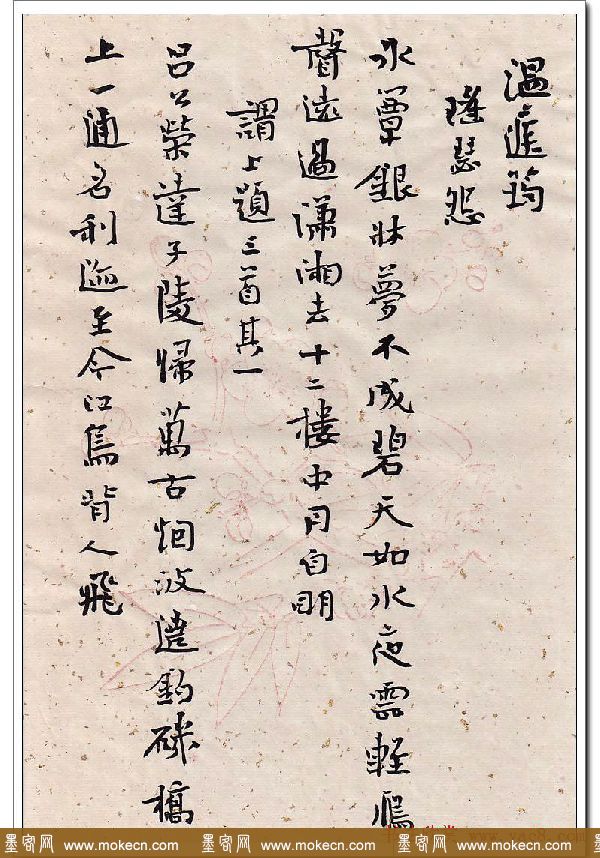 溫庭筠
瑤瑟怨
冰簟銀牀夢不成碧天如水夜雲輕雁
聲遠過瀟湘去十二樓中月自明
謂上題三首其一
呂公榮達子陵歸萬古烟波遶釣磯橋
上一通名利跡至今江鳥背人飛
墨客网 www.mokecn.com 墨客网 www.mokecn.com 墨客网 www.mokecn.com